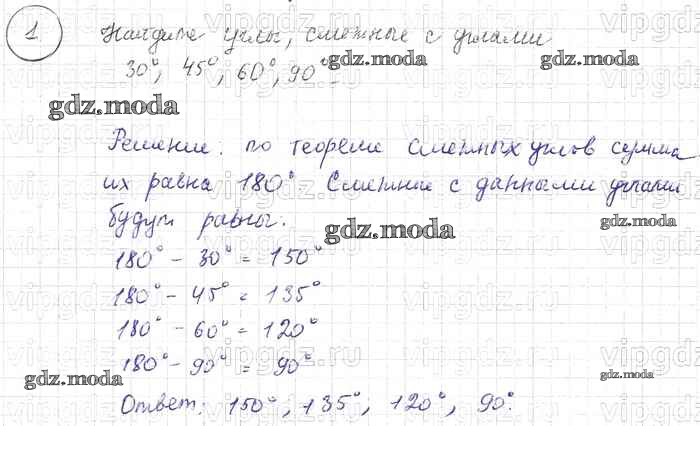 1 Найдите углы, смежные с углами
30°, 45°, 60°, 90°.
Решение: по теореме смежных углов сумма
их равна 180° Смежные с данными углами
будут равны:
180° - 30° = 150°
180° - 45° = 135°
180° - 60° = 120°
180° - 90° = 90°
Ответ: 150°, 135°, 120°, 90°.
gdz.moda
gdz.moda
gdz.moda
gdz.moda
gdz.moda
gdz.moda
gdz.moda
vipgdz.ru